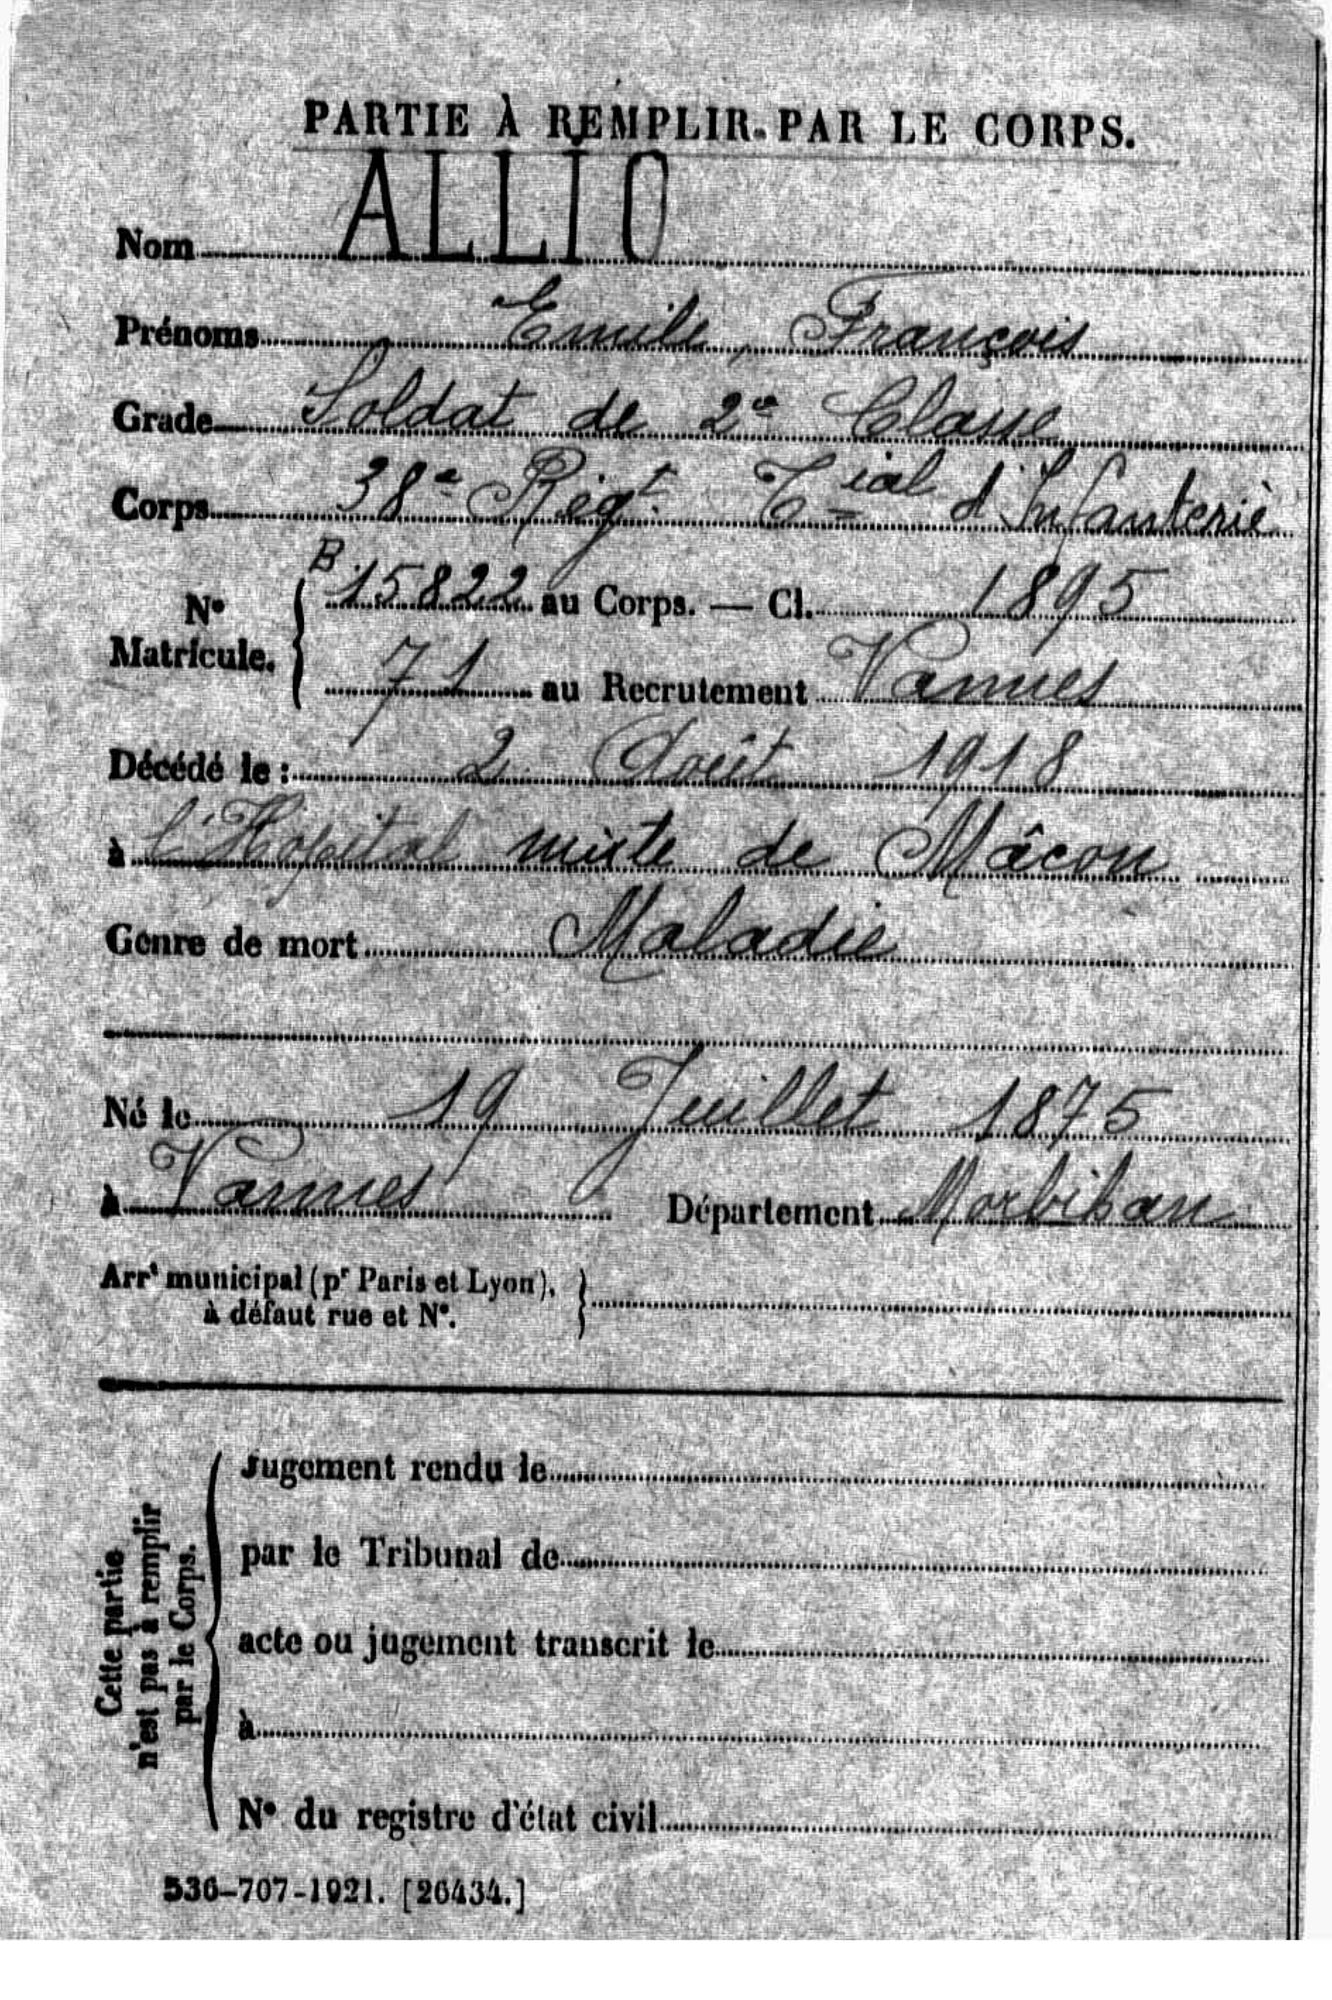 PARTIE À REMPLIR PAR LE CORPS.
Nom ALLIO
Prénoms Emile, François
Grade Soldat de 2e Classe
Corps 38e Régt. Tial d'Infanterie
N° Matricule. { B.15822 au Corps. — Cl. 1895
71 au Recrutement Vannes
Décédé le : 2 Août 1918
à l'Hôpital mixte de Mâcon
Genre de mort Maladie
Né le 19 Juillet 1875
à Vannes Département Morbihan
Arrt municipal (pr Paris et Lyon), }
à défaut rue et N°.
Cette partie
n'est pas à remplir
par le Corps.
Jugement rendu le
par le Tribunal de
acte ou jugement transcrit le
à
N° du registre d'état civil
536-707-1921. [26434.]